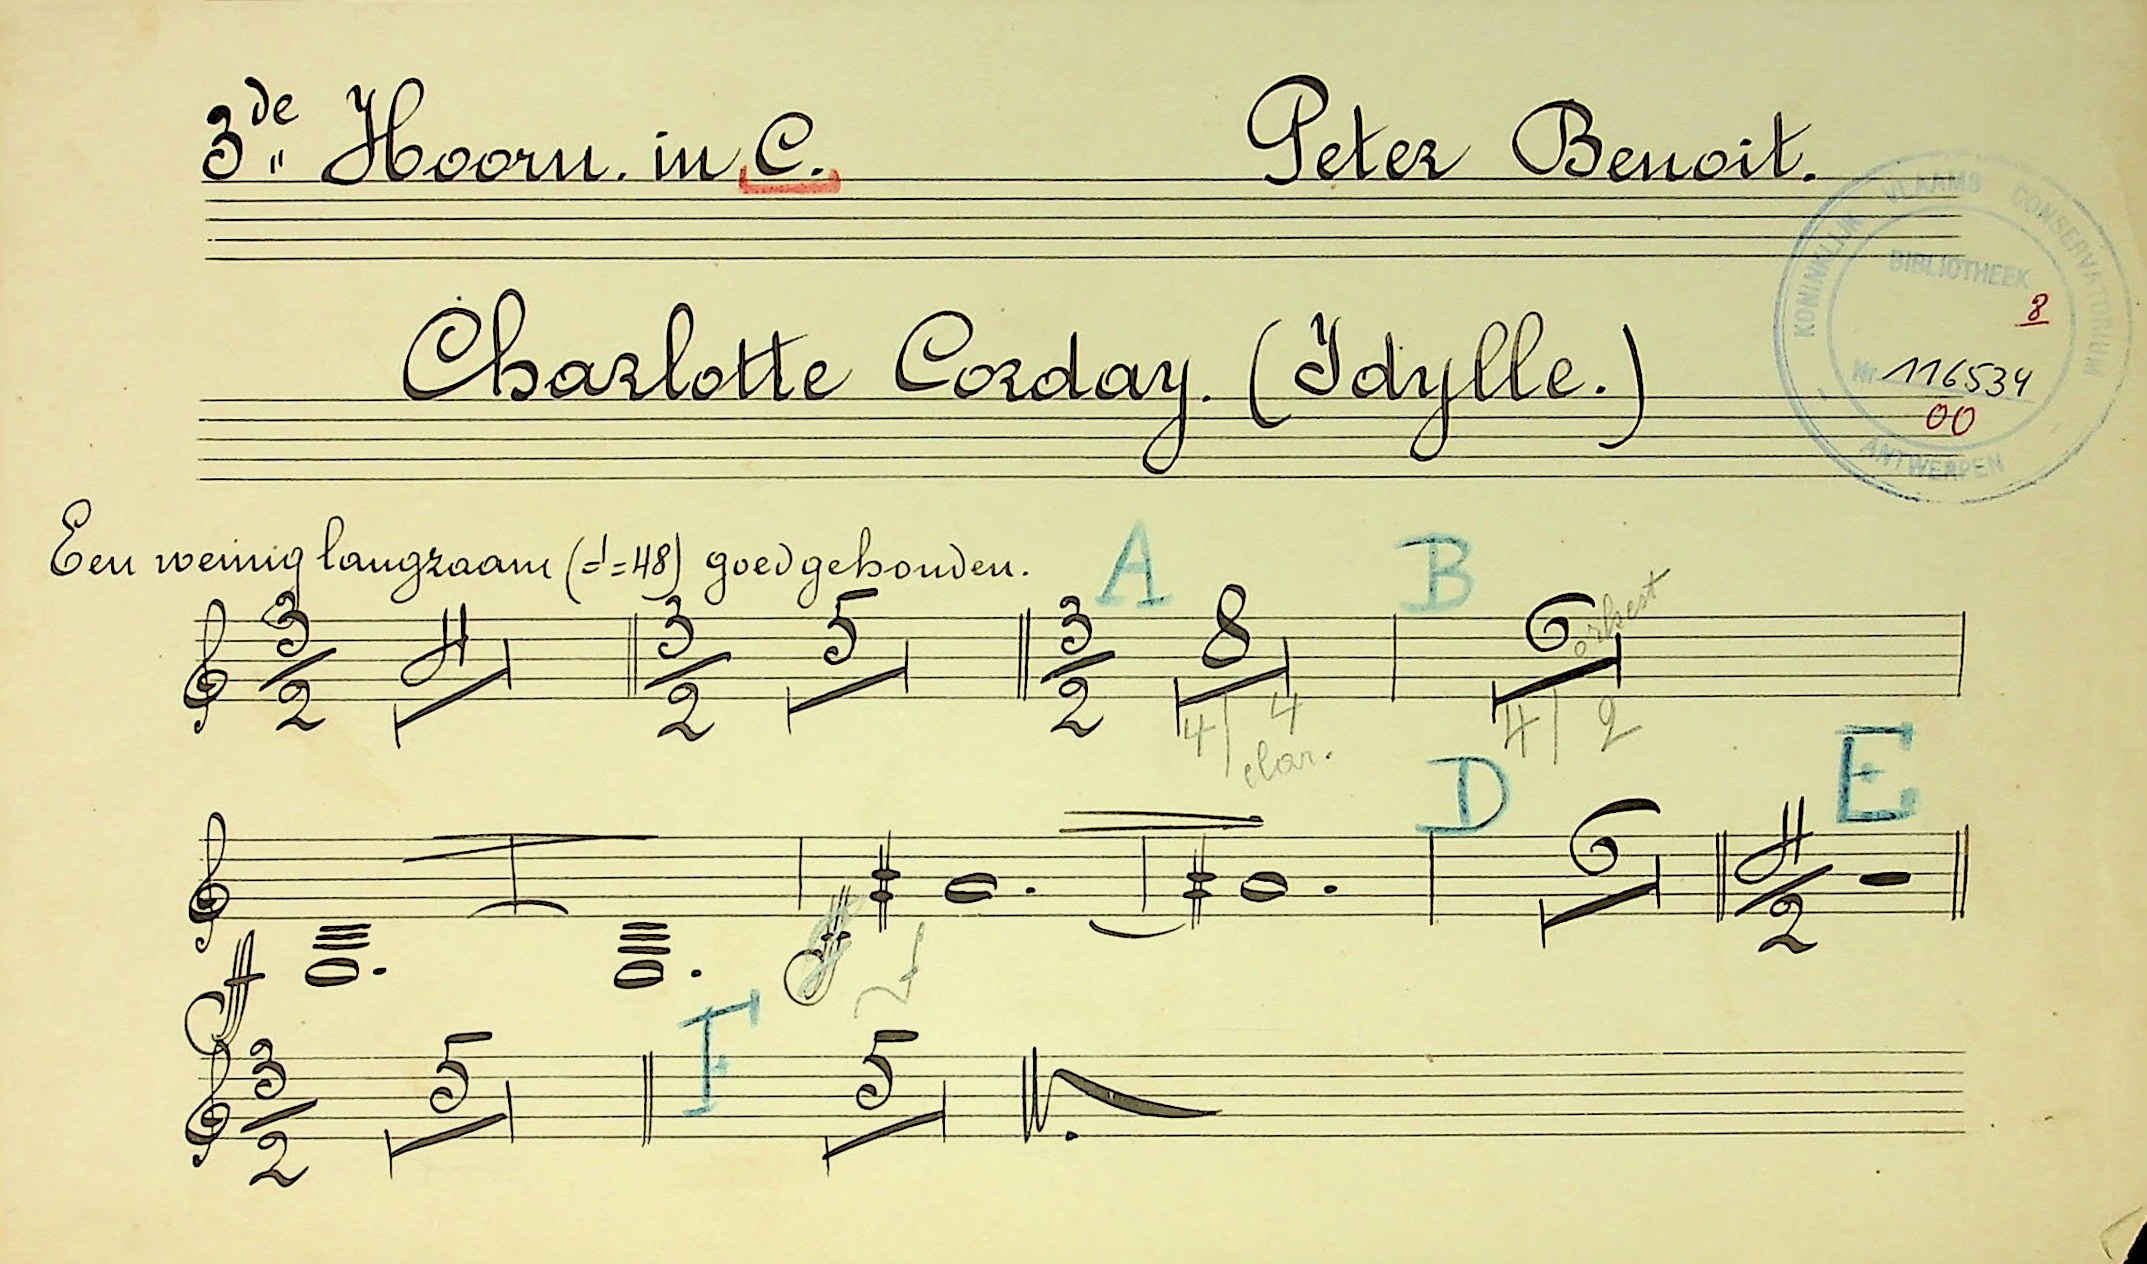 3de Hoorn. in C. Peter Benoit.
KONINKLIJK VLAAMS CONSERVATORIUM
BIBLIOTHEEK
8
Nr 116534
00
ANTWERPEN
Charlotte Corday. (Idylle.)
Een weinig langzaam (=♩=48) goed gehouden.
A B
3/2 4 3/2 5 3/2 8 6 orkest
4 | 4 4 | 2
clar.
D E
6 4/2
f ff f
F
3/2 5 5